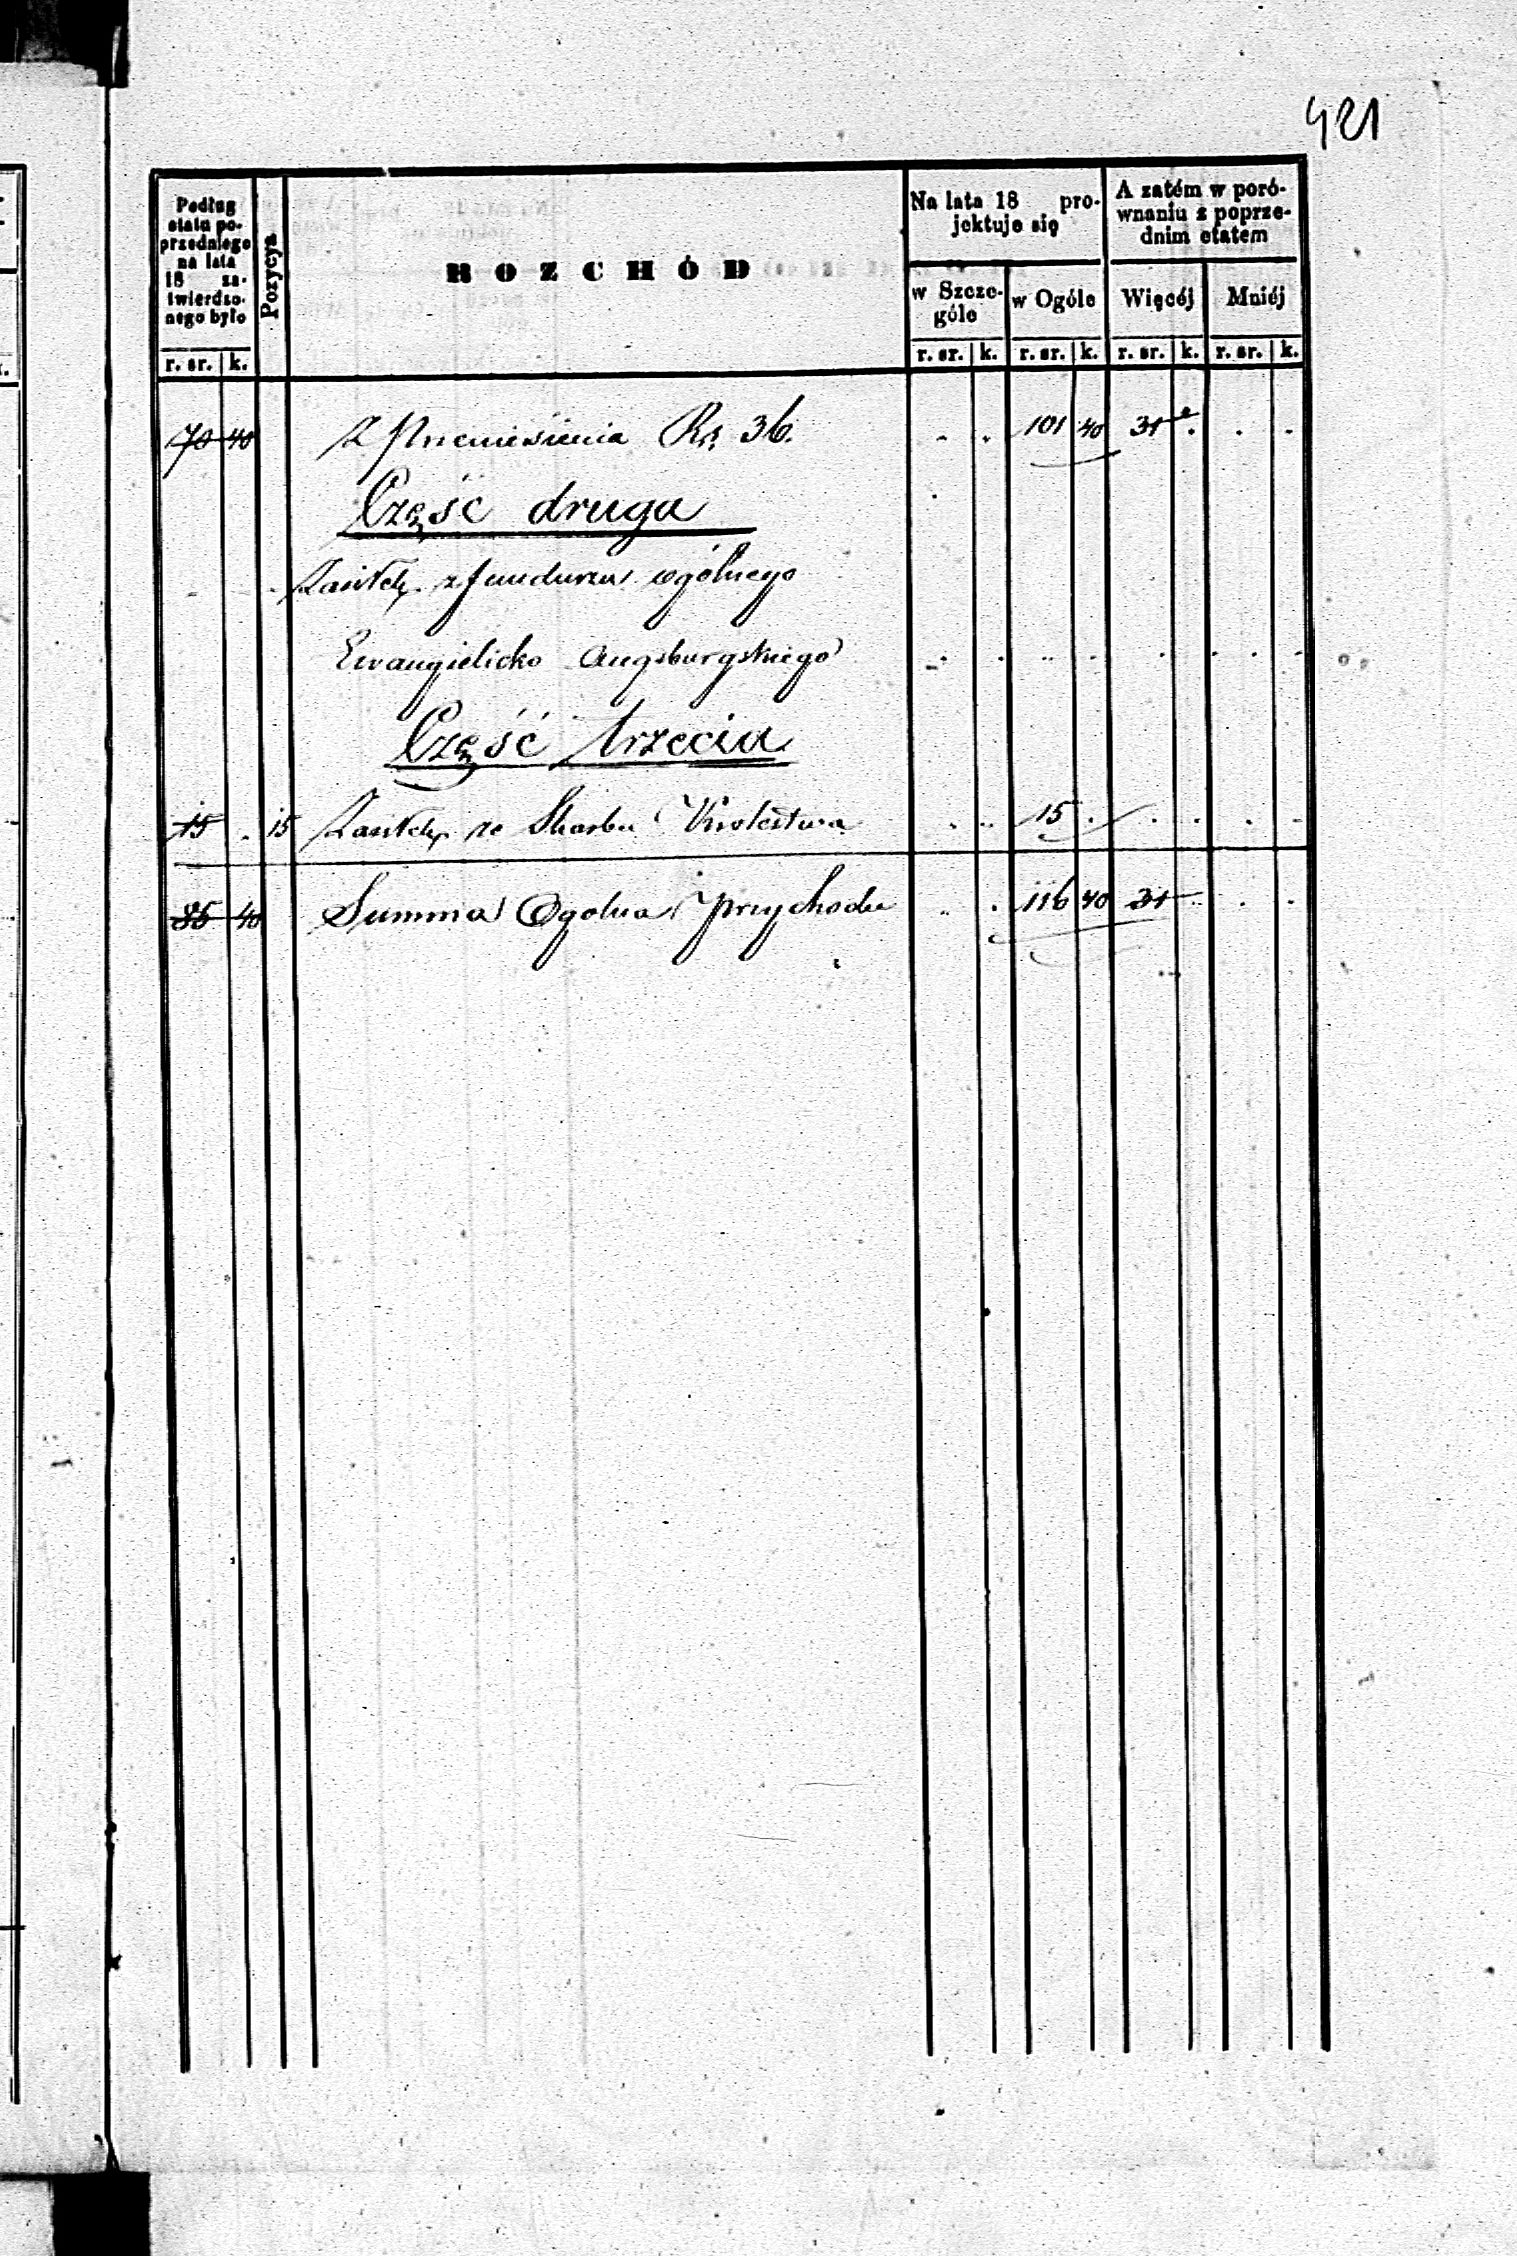 421
Podług etatu poprzedniego na lata 18 zatwierdzonego było
Pozycya
ROZCHÓD
Na lata 18 projektuje się
A zatém w porównaniu z poprzednim etatem
w Szczególe
w Ogóle
Więcéj
Mniéj
r. sr. k. r. sr. k. r. sr. k. r. sr. k. r. sr. k.
70 40 Z Przeniesienia Rs 36. . . 101 40 31 . . .
Część druga
Zasiłek z funduszu ogólnego
Ewangielicko Augsburgskiego
Część trzecia
15 . 15 Zasiłek ze Skarbu Krolestwa . . 15 . . . . .
85 40 Summa Ogolna Przychodu . . 116 40 31 . . .